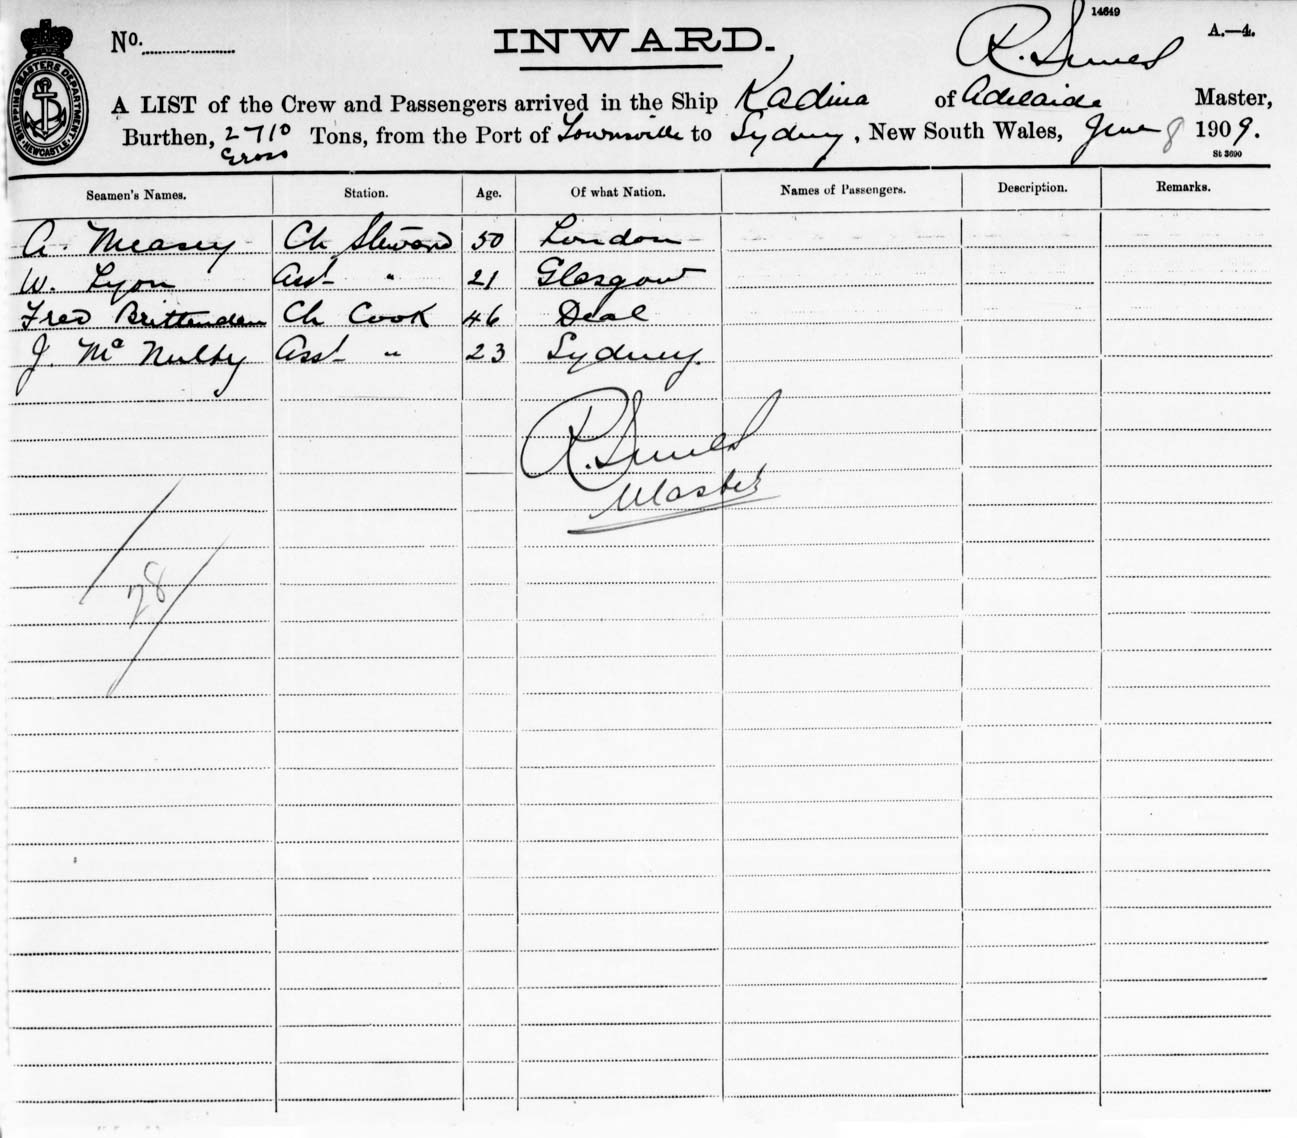 14649
A.—4.
No.
INWARD.
A LIST of the Crew and Passengers arrived in the Ship Kadina of Adelaide Master,
Burthen, 2710 Tons, from the Port of Townsville to Sydney, New South Wales, June 8 1909.
Gross
St 3690
SHIPPING MASTERS DEPARTMENT NEWCASTLE
Seamen's Names. Station. Age. Of what Nation. Names of Passengers. Description. Remarks.
A. Measey Ch Steward 50 London
W. Lyon Asst " 21 Glasgow
Fred Brittenden Ch Cook 46 Deal
J. Mc Nulty Asst " 23 Sydney.
R.
Master
28